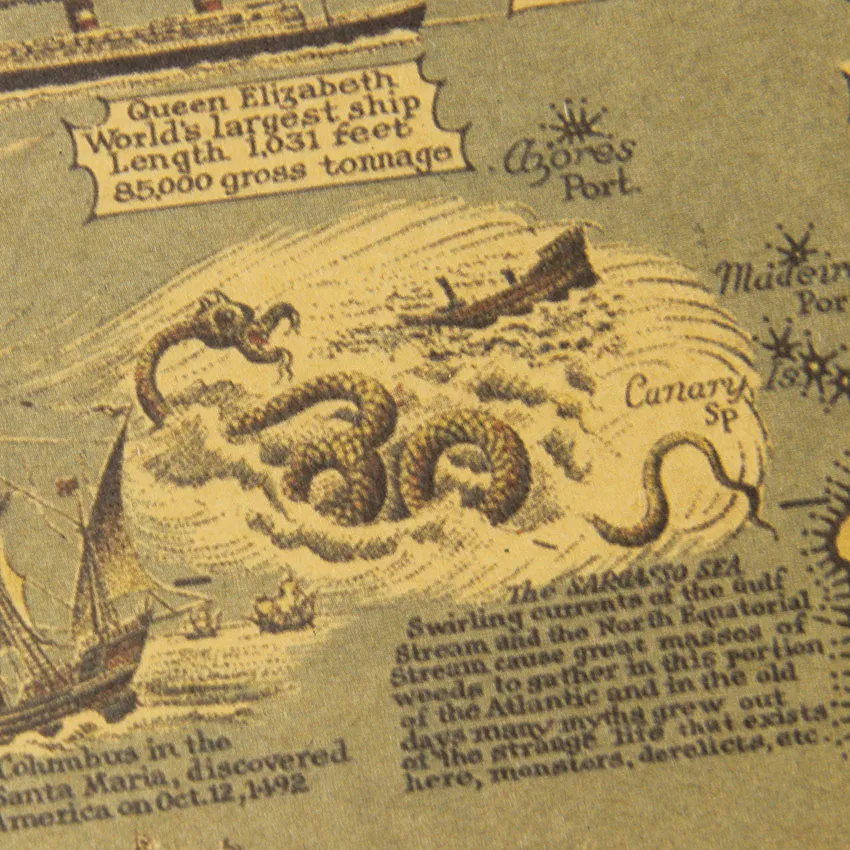 Queen Elizabeth
World's largest ship
Length 1,031 feet
85,000 gross tonnage
Azores
Port.
Madeir
Por
Is
Canary
Sp
The SARGASSO SEA
Swirling currents of the Gulf
Stream and the North Equatorial
Stream cause great masses of
weeds to gather in this portion
of the Atlantic and in the old
days many myths grew out
of the strange life that exists
here, monsters, derelicts, etc.
Columbus in the
Santa Maria, discovered
America on Oct. 12, 1492